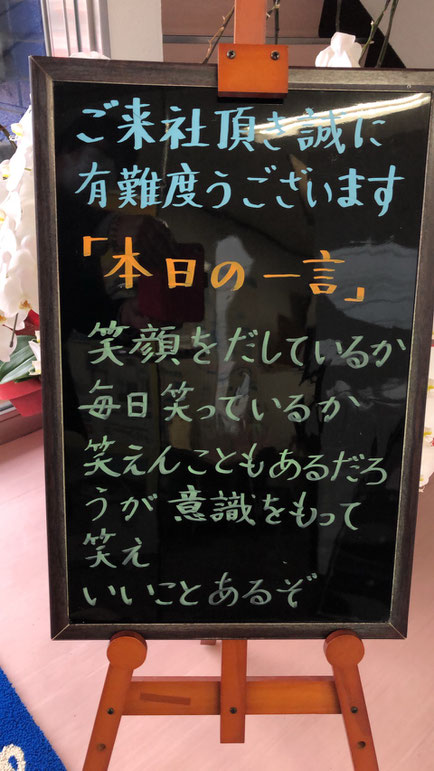 ご来社頂き誠に
有難度うございます
「本日の一言」
笑顔をだしているか
毎日笑っているか
笑えんこともあるだろ
うが意識をもって
笑え
いいことあるぞ